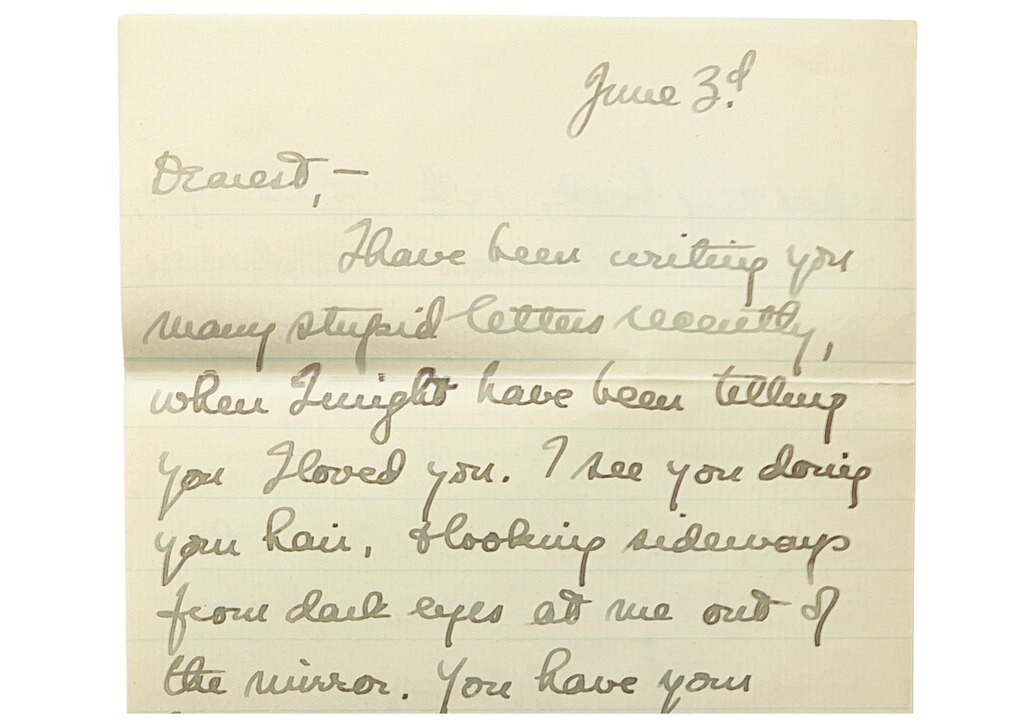 June 3.d
Dearest,—
I have been writing you
many stupid letters recently,
when I might have been telling
you I loved you. I see you doing
your hair, & looking sideways
from dark eyes at me out of
the mirror. You have your